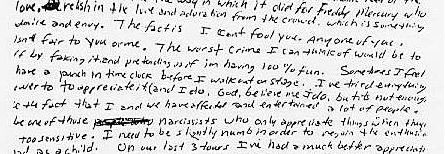 love, relish in the love and adoration from the crowd. which is something
admire and envy. The fact is I cant fool you. Anyone of you.
isnt fair to you or me. The worst crime I can think of would be to
off by faking it and pretending as if im having 100% fun. Sometimes I feel
have a punch in time clock before I walk out on stage. I've tried everything
power to appreciate it (and I do. God, believe me I do, but its not enough
the fact that I and we have affected and entertained a lot of people.
be one of those narcissists who only appreciate things when they
too sensitive. I need to be slightly numb in order to regain the enthusia
as a child. On our last 3 tours I've had a much better appreciati